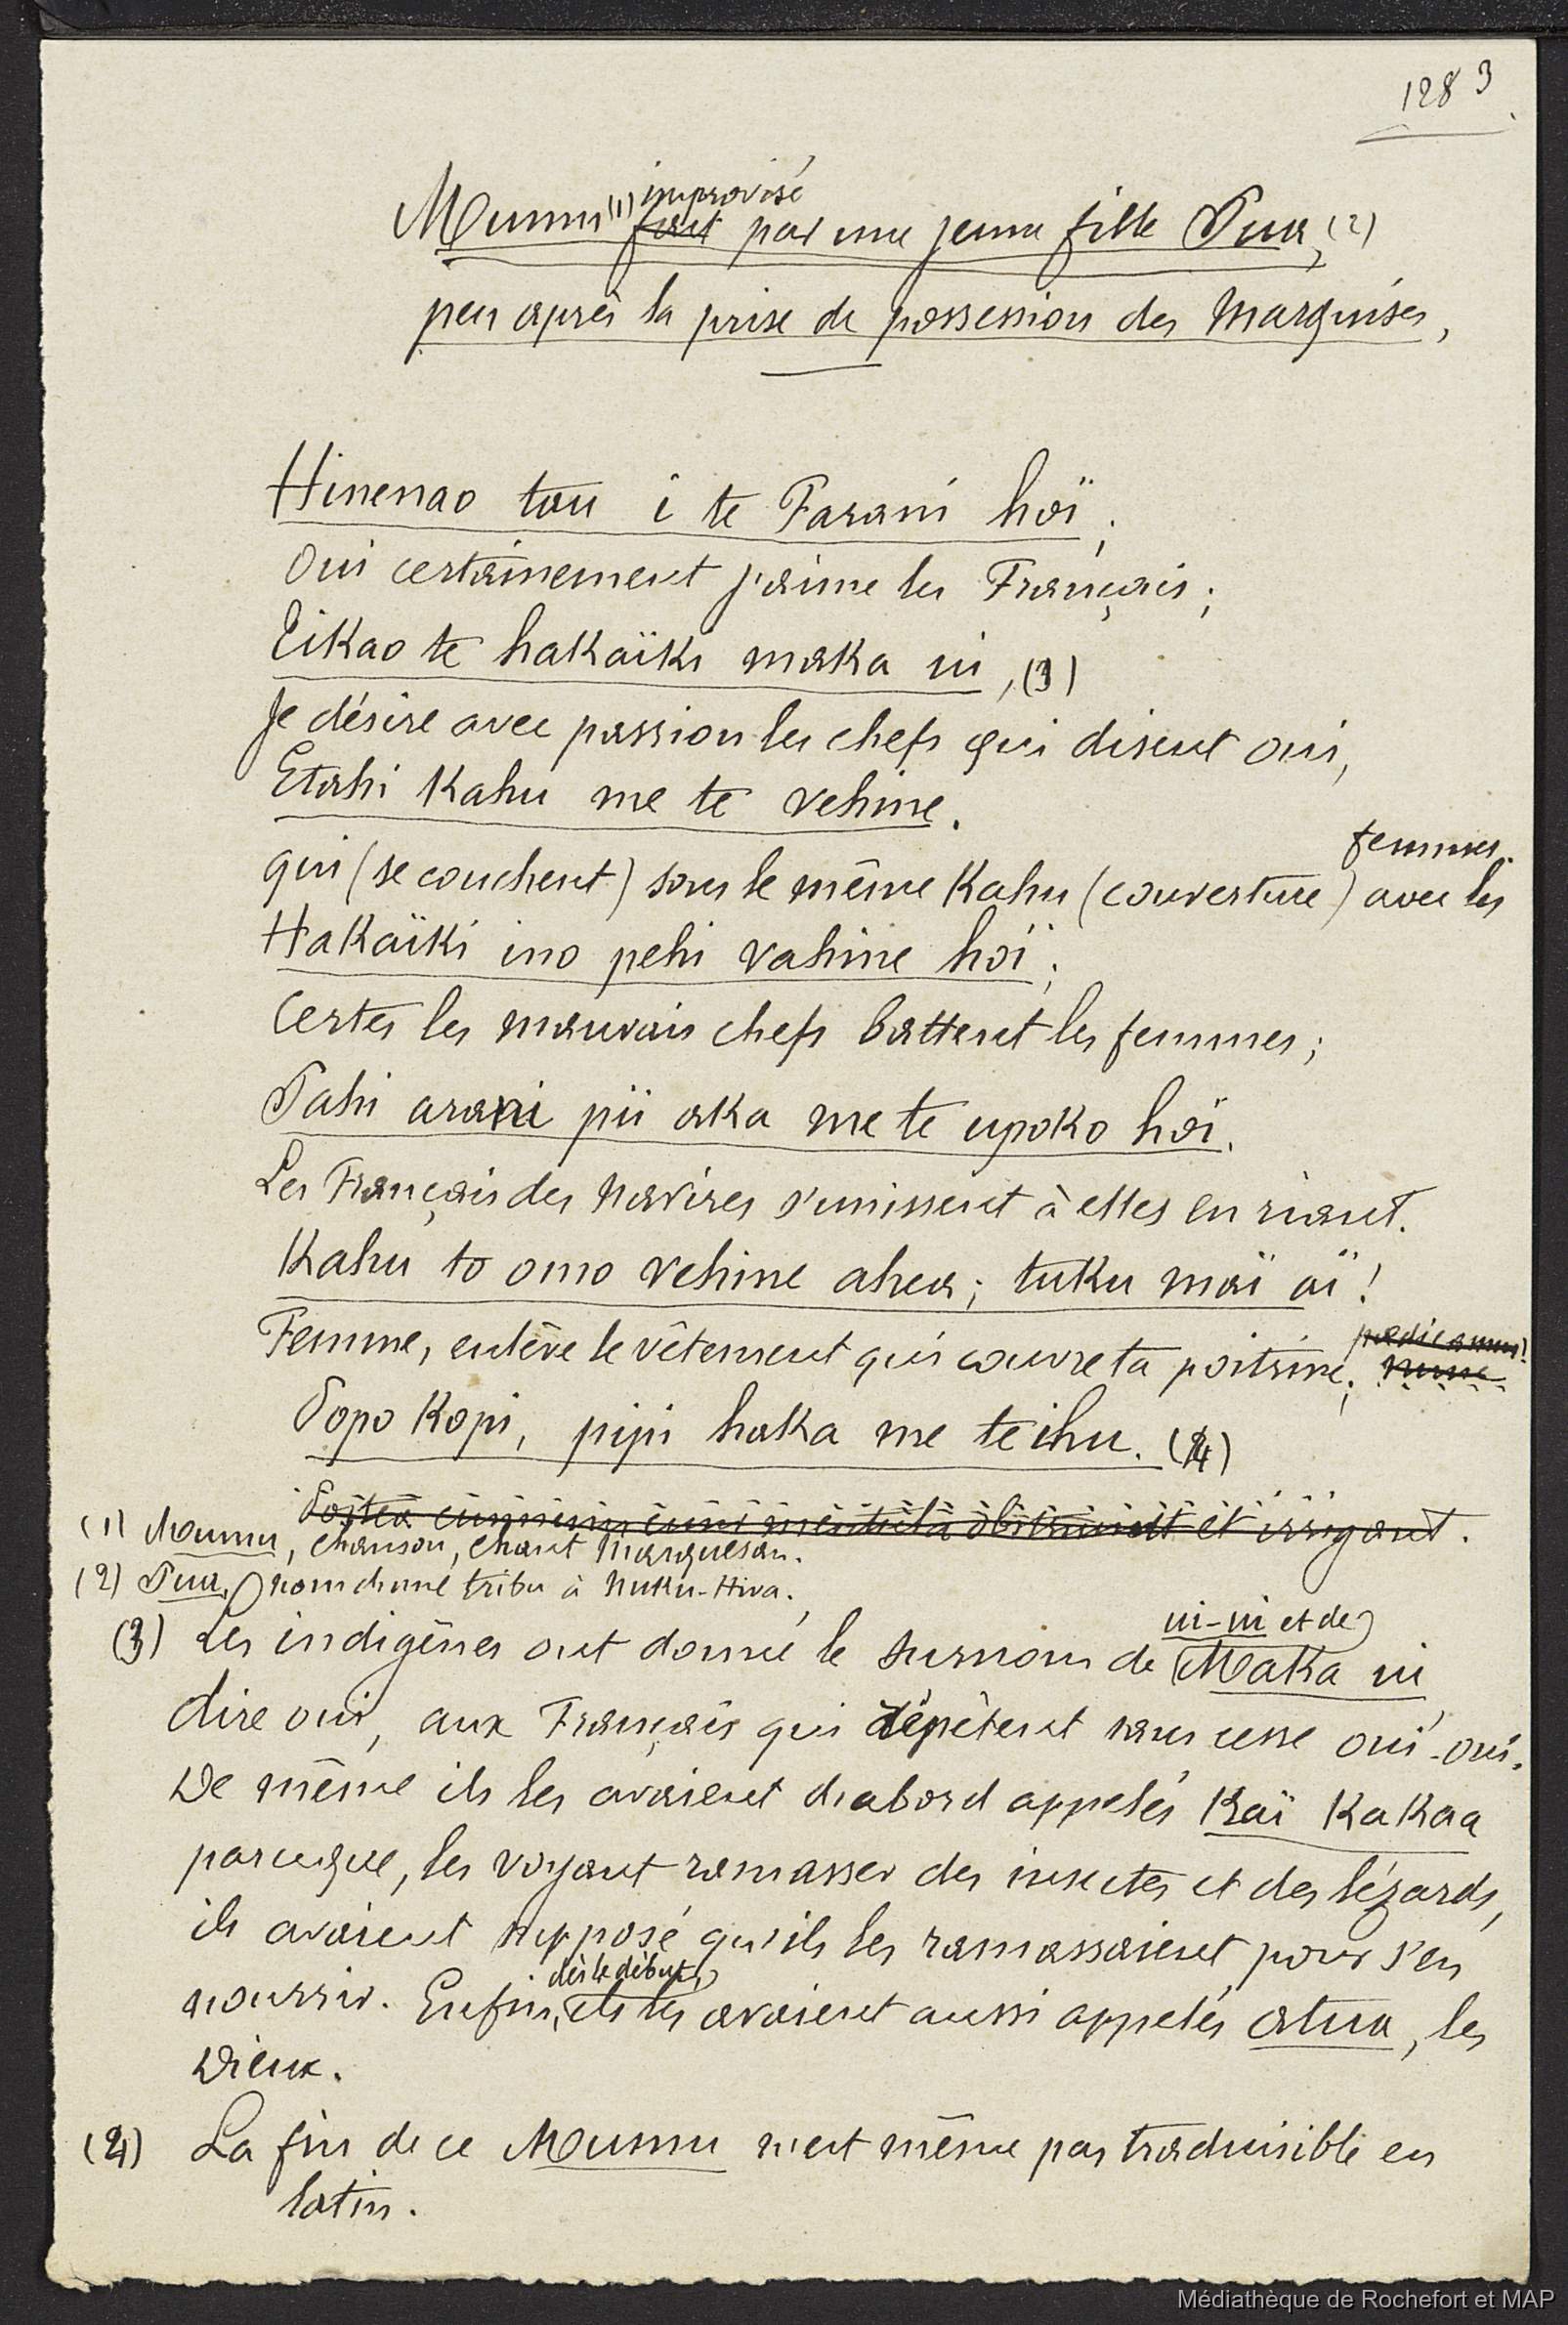 1283
improvisé
Mumu (1) fait par une jeune fille Pua, (2)
peu après la prise de possession des Marquises,
Hinenao tou i te Farani hoï;
Oui certainement j'aime les Français;
Eikao te hakaïki maka ui, (3)
Je désire avec passion les chefs qui disent oui,
Etahi Kahu me te vehine.
femmes.
qui (se couchent) sous le même Kahu (couverture) avec les
Hakaïki ino pehi vahine hoï;
Certes les mauvais chefs battent les femmes;
Pahi arani pii aka me te upoko hoï.
Les Français des navires s'unissent à elles en riant.
Kahu to omo vehine ahea; tuku maï aï!
Femme, enlève le vêtement qui couvre ta poitrine;
Popo Kopi, pipi haka me te ihu. (4)
et irrigant.
(1) Mumu, chanson, chant Marquesan.
(2) Pua, nom d'une tribu à Nuku-Hiva.
ui-ui et de
(3) Les indigènes ont donné le surnom de Maka ui
dire oui, aux Français qui répètent sans cesse oui-oui.
De même ils les avaient d'abord appelés Kaï Kakaa
parceque, les voyant ramasser des insectes et des lézards,
ils avaient supposé qu'ils les ramassaient pour s'en
dès le début,
nourrir. Enfin, ils les avaient aussi appelés atua, les
Dieux.
(4) La fin de ce Mumu n'est même pas traduisible en
latin.
Médiathèque de Rochefort et MAP